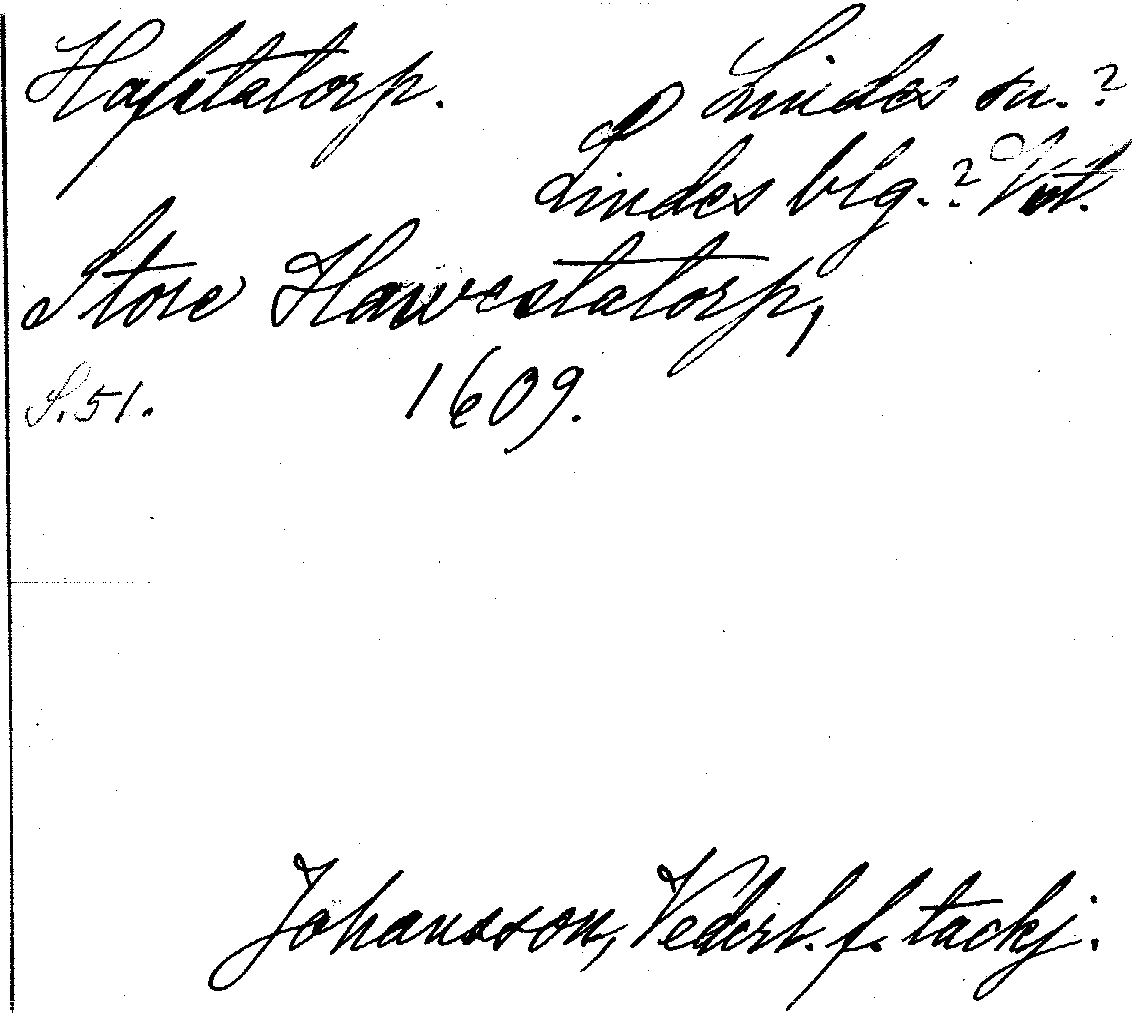 Hafstatorp. Lindes sn.?
Lindes blg.? Vstl.
Store Hawestatorp,
S. 51. 1609.
Johansson, Vederl. f. tackj.